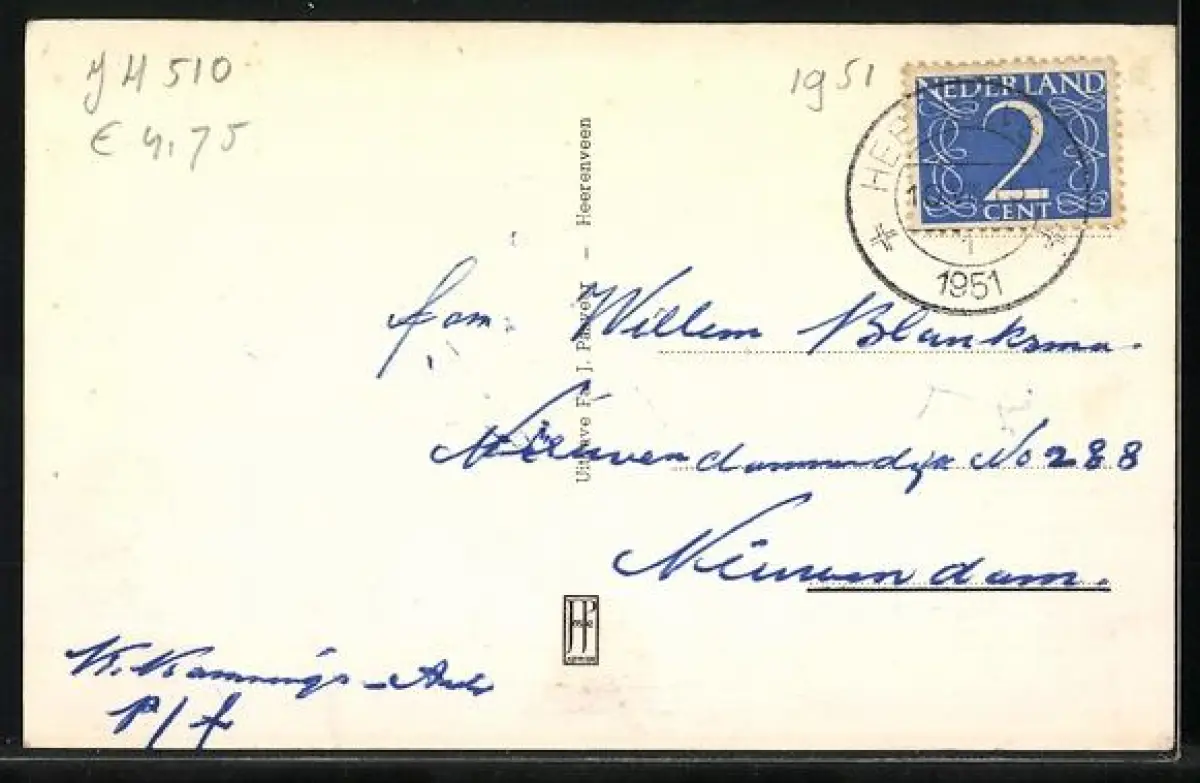 J H 510
€ 4,75
1951
NEDERLAND
2
CENT
HEE
1
1951
Uitgave Fa. J. — Heerenveen
fam. Willem Blanksma.
Nieuwendammerdijk No 288
Nieuwendam.
K.
p/f